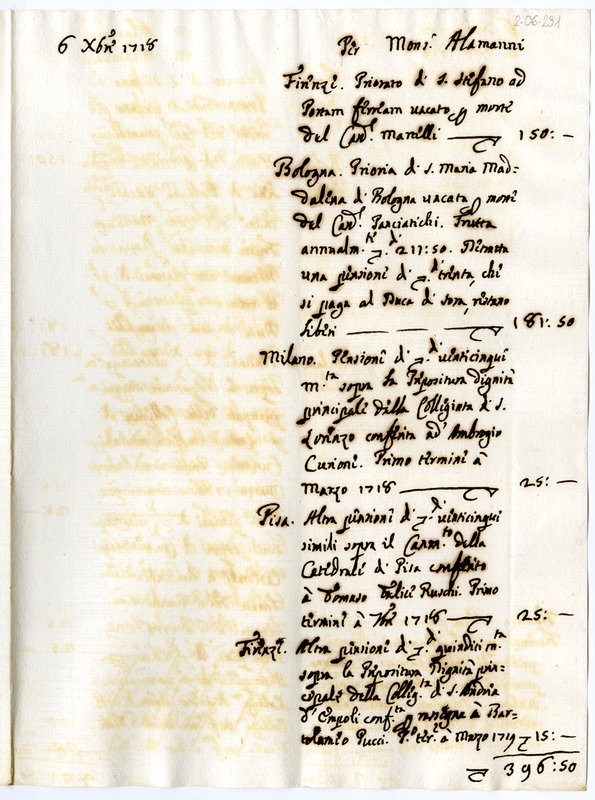 2-06-291
6 Xbr̃e 1718 Per Mons.r Alamanni
Firenze. Priorato di S. Stefano ad
Portam ferream vacato p morte
del Card.l Martelli 150: —
Bologna. Prioria di S. Maria Mad=
dalena di Bologna vacata p morte
del Card.l Panciatichi. Frutta
annualm.te 211:50. Detratta
una pensione di trenta, che
si paga al Duca di Sora, restano
liberi 181:50
Milano. Pensione di venticinque
m.ta sopra la Prepositura dignità
principale della Collegiata di S.
Lorenzo conferita ad Ambrogio
Curioni. Primo termine à
Marzo 1718 25: —
Pisa. Altra pensione di venticinque
simili sopra il Canon.to della
Catedrale di Pisa conferito
à Tomaso Felice Ruschi. Primo
termine à 7br̃e 1718 25: —
Firenze. Altra pensione di quindici m.ta
sopra la Prepositura Dignità prin=
cipale della Colleg.ta di S. Andrea
d'Empoli conf.ta p rassegna à Bar=
tolomeo Pucci. P.o ter.e à Marzo 1719 15: —
396:50